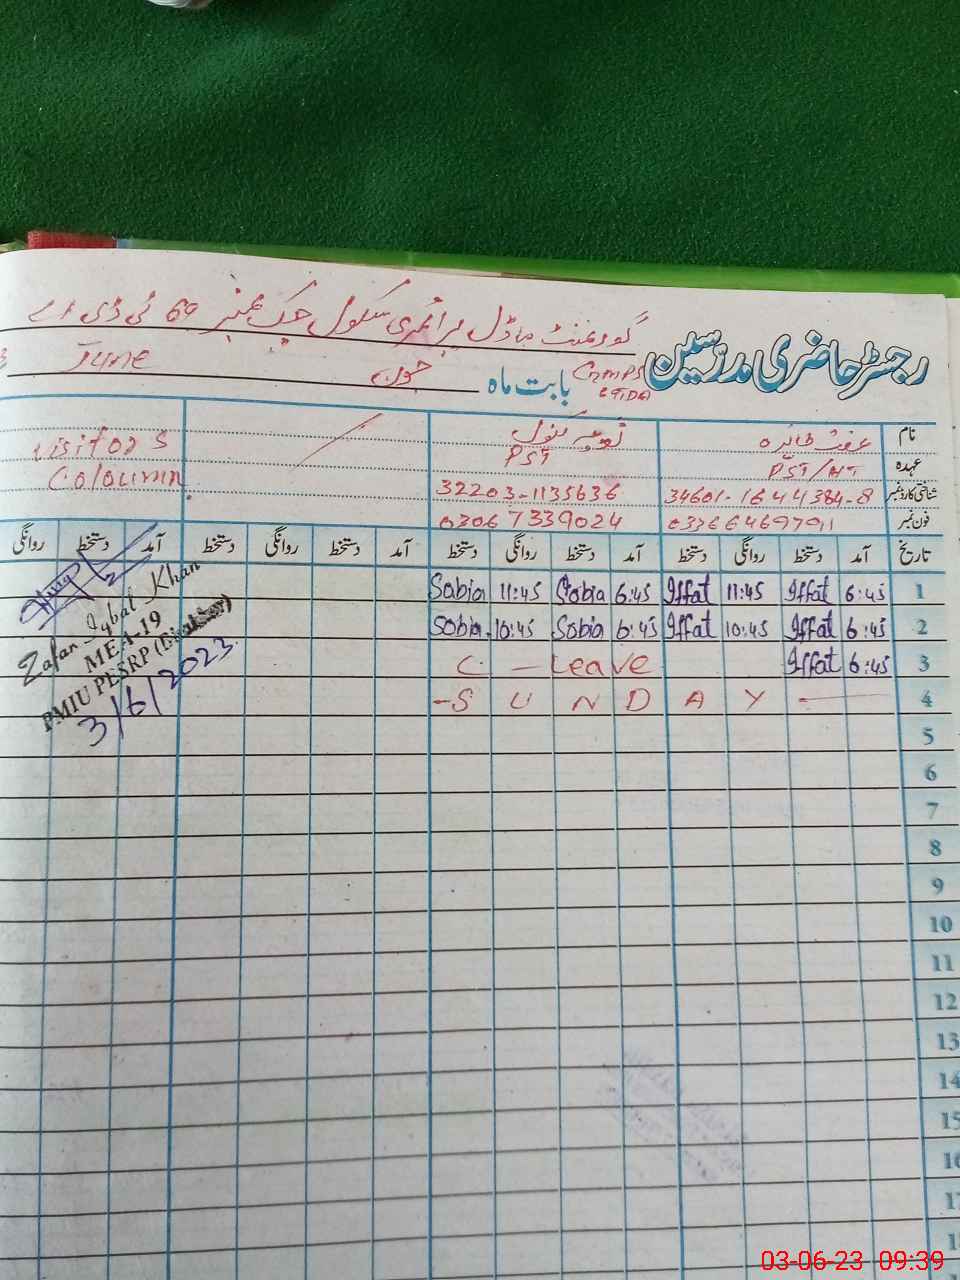 گورنمنٹ ماڈل پرائمری سکول چک نمبر 69 ٹی ڈی اے
رجسٹر حاضری مدرسین
GMPS
69TDA
بابت ماہ جون June
نام عفت طائرہ
Visitors
Coloumn
عہدہ PST/HT PST
شناختی کارڈ نمبر 34601-1644384-8 32203-1135636
فون نمبر 03366469791 03067339024
تاریخ آمد دستخط روانگی دستخط آمد دستخط روانگی دستخط آمد دستخط روانگی دستخط آمد دستخط روانگی
1 6:45 Iffat 11:45 Iffat 6:45 Sobia 11:45 Sobia
2 6:45 Iffat 10:45 Iffat 6:45 Sobia 10:45 Sobia
3 6:45 Iffat C - Leave
4 - S U N D A Y -
5
6
7
8
9
10
11
12
13
14
15
16
Zafar Iqbal Khan
MEA-19
PMIU PESRP
3/6/2023
03-06-23 09:39